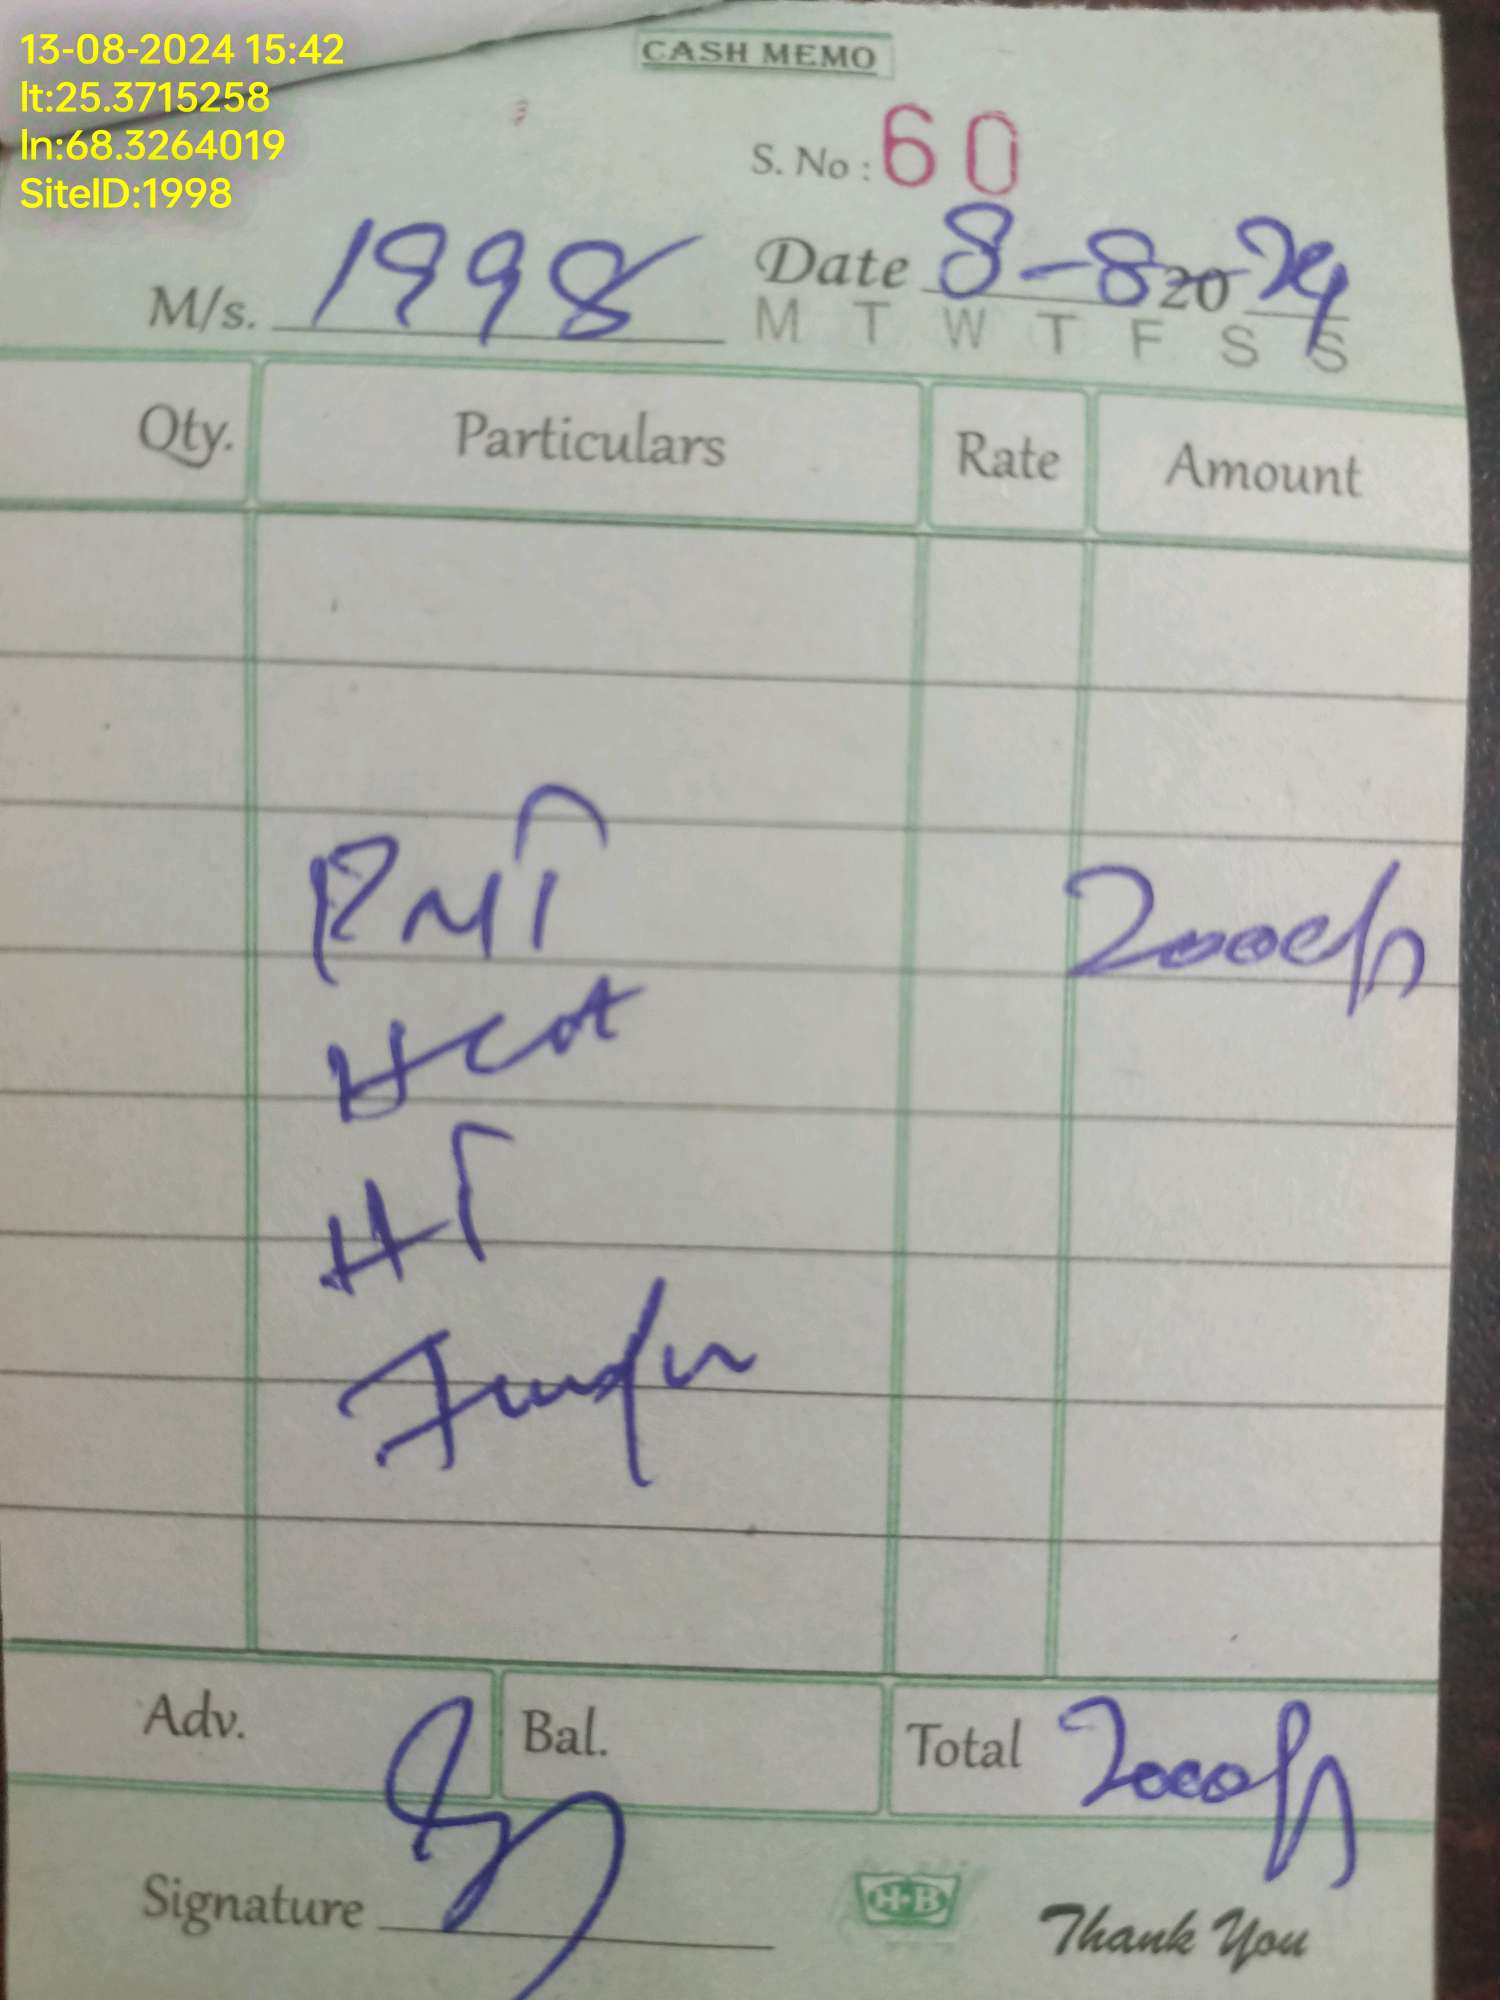 13-08-2024 15:42
lt:25.3715258
ln:68.3264019
SiteID:1998
CASH MEMO
S. No : 60
M/s. 1998 Date 8-8 2024
M T W T F S S
Qty. Particulars Rate Amount
2000/
HT
Adv. Bal. Total 2000/
Signature
H-B
Thank You